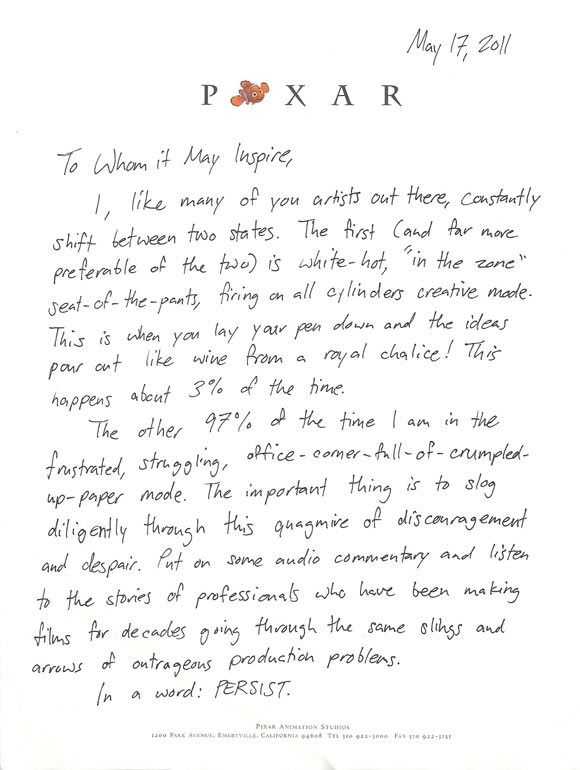 May 17, 2011
P XAR
To Whom it May Inspire,
I, like many of you artists out there, constantly
shift between two states. The first (and far more
preferable of the two) is white-hot, "in the zone"
seat-of-the-pants, firing on all cylinders creative mode.
This is when you lay your pen down and the ideas
pour out like wine from a royal chalice! This
happens about 3% of the time.
The other 97% of the time I am in the
frustrated, struggling, office-corner-full-of-crumpled-
up-paper mode. The important thing is to slog
diligently through this quagmire of discouragement
and despair. Put on some audio commentary and listen
to the stories of professionals who have been making
films for decades going through the same slings and
arrows of outrageous production problems.
In a word: PERSIST.
PIXAR ANIMATION STUDIOS
1200 PARK AVENUE, EMERYVILLE, CALIFORNIA 94608 TEL 510 922-3000 FAX 510 922-3151